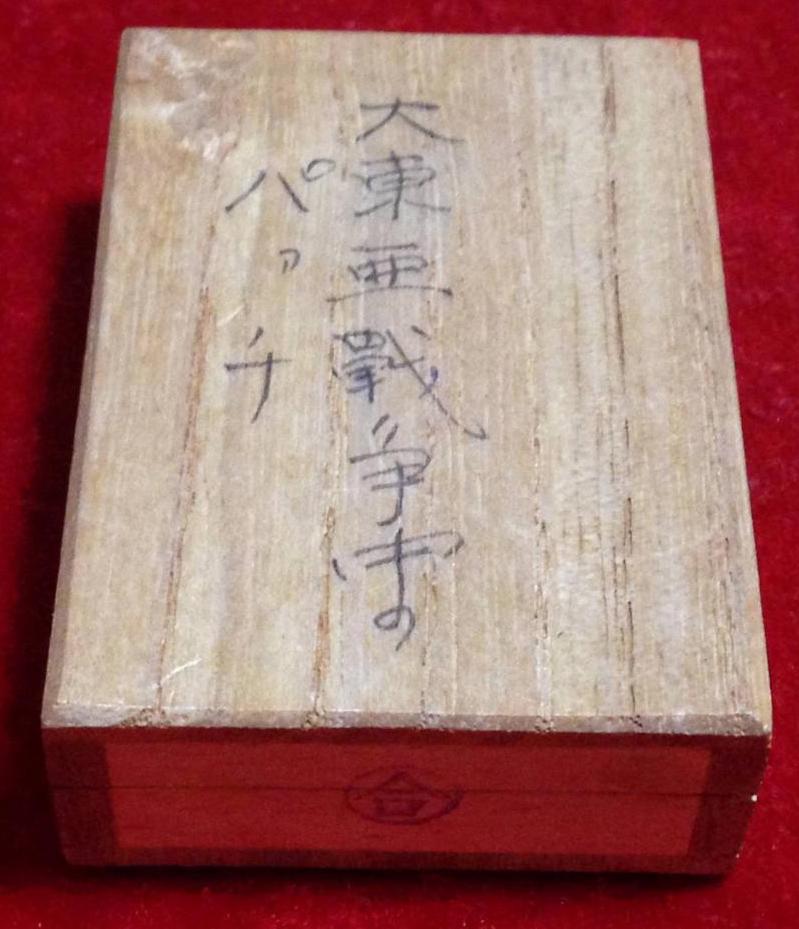 大東亜戰争の
パッチ
合